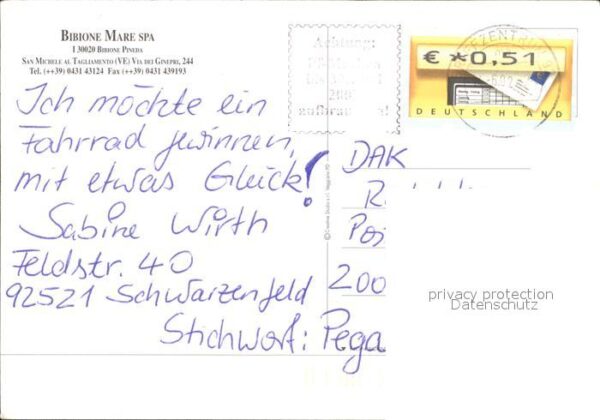 BIBIONE MARE SPA
I 30020 BIBIONE PINEDA
SAN MICHELE AL TAGLIAMENTO (VE) VIA DEI GINEPRI, 244
Tel. (++39) 0431 43124 Fax (++39) 0431 439193
Ich möchte ein
Fahrrad gewinnen,
mit etwas Glück!
Sabine Wirth
Feldstr. 40
92521 Schwarzenfeld
Stichwort: Pega
Achtung:
€ *0,51
DEUTSCHLAND
DAK
R
Pos
200
privacy protection
Datenschutz